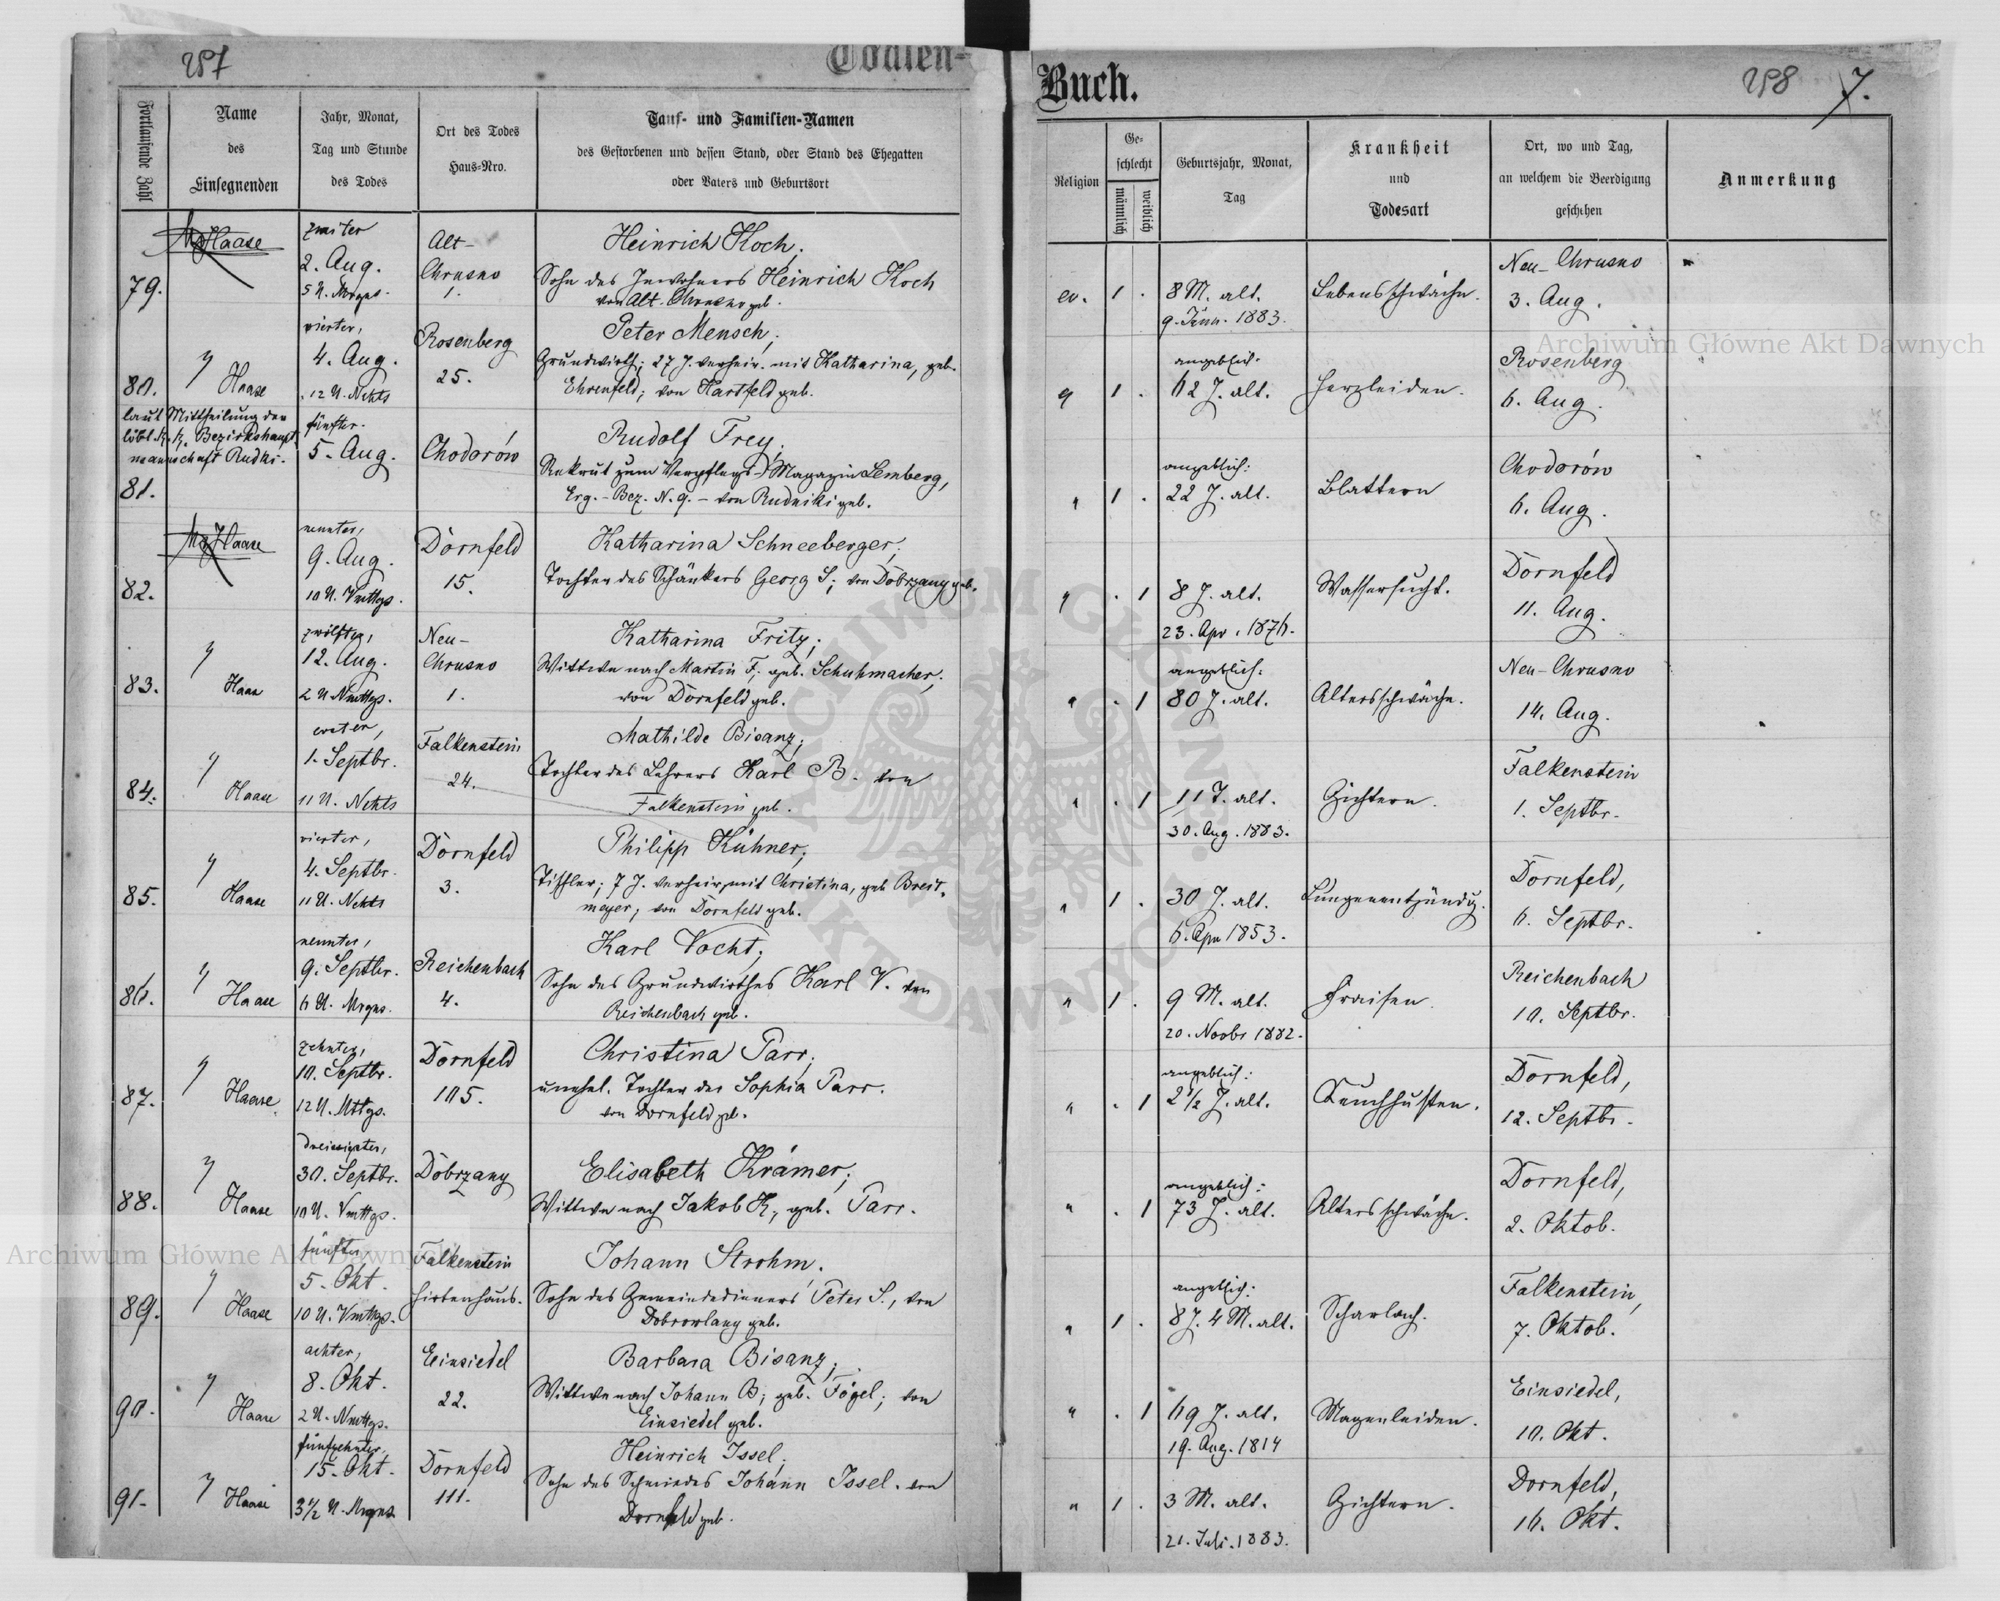 257
Todten-
Fortlaufende Zahl
Name
des
Einsegnenden
Jahr, Monat,
Tag und Stunde
des Todes
Ort des Todes
Haus-Nro.
Tauf- und Familien-Namen
des Gestorbenen und dessen Stand, oder Stand des Ehegatten
oder Vaters und Geburtsort
79.
Haase
2. Aug.
5 U. Mrgns.
Alt-
Chrusno
1.
Heinrich Koch,
Sohn des Inwohners Heinrich Koch
von Alt-Chrusno geb.
80.
" Haase
vierter,
4. Aug.
12 U. Nchts
Rosenberg
25.
Peter Mensch,
Grundwirth; 27 J. verheir. mit Katharina, geb.
Ehrenfeld; von Hartfeld geb.
laut Mittheilung der
löbl. k. k. Bezirkshaupt-
mannschaft Rudki.
81.
fünfter.
5. Aug.
Chodorów
Rudolf Frey,
Rekrut zum Verpflegs-Magazin Lemberg,
Erg.-Bez. N. 9. - von Rudniki geb.
82.
Haase
neunter,
9. Aug.
10 U. Vmttgs.
Dornfeld
15.
Katharina Schneeberger,
Tochter des Schänkers Georg S; von Dobrzany geb.
83.
" Haase
zwölfter,
12. Aug.
2 U Nmttgs.
Neu-
Chrusno
1.
Katharina Fritz;
Wittwe nach Martin F; geb. Schuhmacher,
von Dornfeld geb.
84.
" Haase
erster,
1. Septbr.
11 U. Nchts
Falkenstein
24.
Mathilde Bisanz;
Tochter des Lehrers Karl B. von
Falkenstein geb.
85.
" Haase
vierter,
4. Septbr.
11 U. Nchts
Dornfeld
3.
Philipp Kühner;
Tischler; 7 J. verheir. mit Christina, geb Breit-
meyer; von Dornfeld geb.
86.
" Haase
neunter,
9. Septbr.
6 U. Mrgns.
Reichenbach
4.
Karl Vocht;
Sohn des Grundwirthes Karl V. von
Reichenbach geb.
87.
" Haase
zehnter,
10. Septbr.
12 U. Mttgs.
Dornfeld
105.
Christina Parr;
unehel. Tochter der Sophia Parr.
von Dornfeld geb.
88.
" Haase
dreissigster,
30. Septbr.
10 U. Vmttgs.
Dobrzany
Elisabeth Krämer;
Wittwe nach Jakob K., geb. Parr.
89.
" Haase
fünfter,
5. Okt.
10 U. Vmttgs.
Falkenstein
Hirtenhaus.
Johann Strohm.
Sohn des Gemeindedieners Peter S., von
geb.
90.
" Haase
achter,
8. Okt.
2 U. Nmttgs.
Einsiedel
22.
Barbara Bisanz;
Wittwe nach Johann B; geb. Fögel; von
Einsiedel geb.
91.
" Haase
fünfzehnter,
15. Okt.
3 1/2 U. Mrgns
Dornfeld
111.
Heinrich Issel,
Sohn des Schmiedes Johann Issel. von
Dornfeld geb.
Buch.
258
7.
Religion
Ge-
schlecht
männlich
weiblich
Geburtsjahr, Monat,
Tag
Krankheit
und
Todesart
Ort, wo und Tag,
an welchem die Beerdigung
geschehen
Anmerkung
ev. 1 .
8 M. alt.
9. Jänn. 1883.
Lebensschwäche.
Neu-Chrusno
3. Aug.
" 1 .
angeblich:
62 J. alt.
Herzleiden.
Rosenberg
6. Aug.
" 1 .
angeblich:
22 J. alt.
Blattern
Chodorów
6. Aug.
" . 1
8 J. alt.
23. Apr. 1876.
Wassersucht.
Dornfeld
11. Aug.
" . 1
angeblich:
80 J. alt.
Altersschwäche.
Neu-Chrusno
14. Aug.
" . 1
11 T. alt.
30. Aug. 1883.
Gichtern.
Falkenstein
1. Septbr.
" 1 .
30 J. alt.
6. Apr 1853.
Lungenentzündg.
Dornfeld,
6. Septbr.
" 1 .
9 M. alt.
20. Novbr 1882.
Fraisen
Reichenbach
10. Septbr.
" . 1
angeblich:
2 1/2 J. alt.
Keuchhusten.
Dornfeld,
12. Septbr.
" . 1
angeblich:
73 J. alt.
Altersschwäche.
Dornfeld,
2. Oktob.
" 1 .
angeblich:
8 J. 4 M. alt.
Scharlach.
Falkenstein,
7. Oktob.
" . 1
69 J. alt.
19. Aug. 1814
Magenleiden.
Einsiedel,
10. Okt.
" 1 .
3 M. alt.
21. Juli. 1883.
Gichtern.
Dornfeld,
16. Okt.
Archiwum Główne Akt Dawnych
Archiwum Główne Akt Dawnych
ARCHIWUM GŁÓWNE AKT DAWNYCH